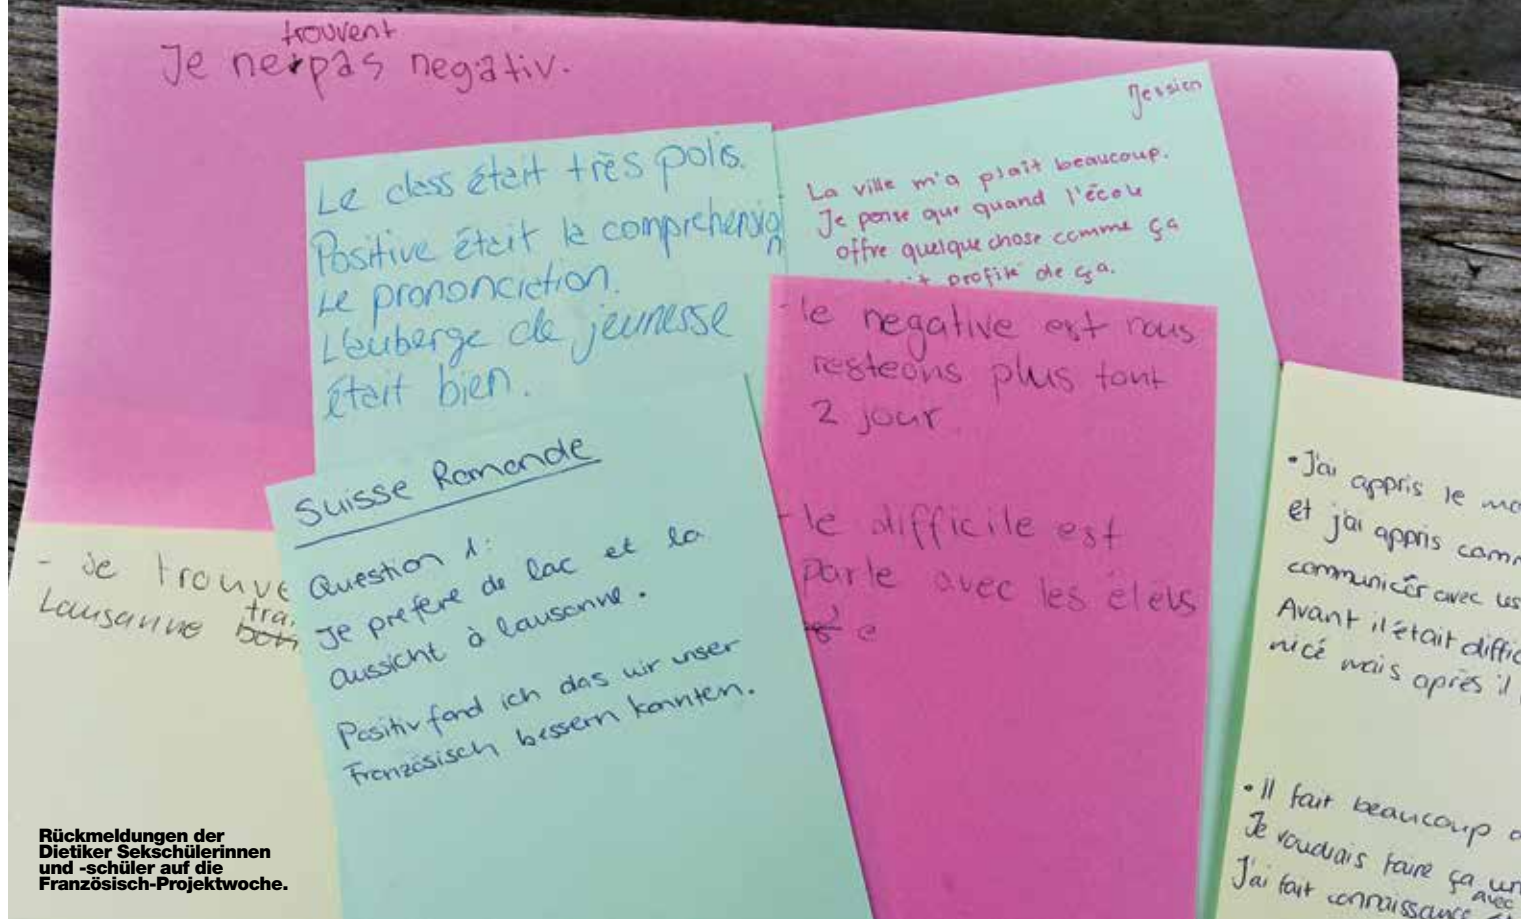 trouvent
Je ne pas negativ.
Le class était très polis.
Positive était le comprehension
Le prononciation.
L'auberge de jeunesse
était bien.
Jessien
La ville m'a plaît beaucoup.
Je pense que quand l'école
offre quelque chose comme ça
profité de ça.
-le negative est nous
resteons plus tant
2 jour
-le difficile est
parle avec les élels
e
Suisse Romande
Question 1:
Je prefère de lac et la
Aussicht à Lausanne.
Positiv fand ich das wir unser
Französisch bessern konnten.
- Je trouve
Lausanne
• J'ai appris le
et j'ai appris
communicér avec
Avant il était
nicé mais après il
• Il fait beaucoup
Je voudrais faire ça
avec
J'ai fait connaissance
Rückmeldungen der
Dietiker Sekschülerinnen
und -schüler auf die
Französisch-Projektwoche.